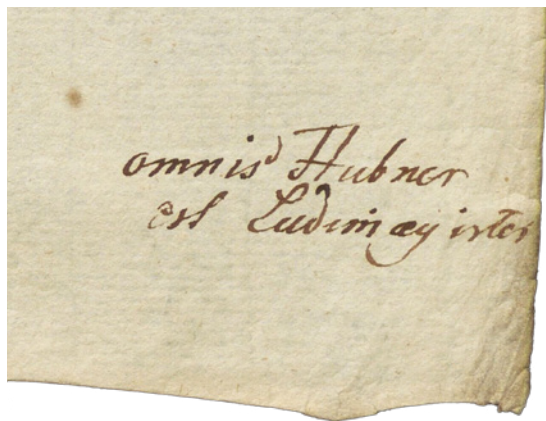 omnis Hubner
est Ludimagister